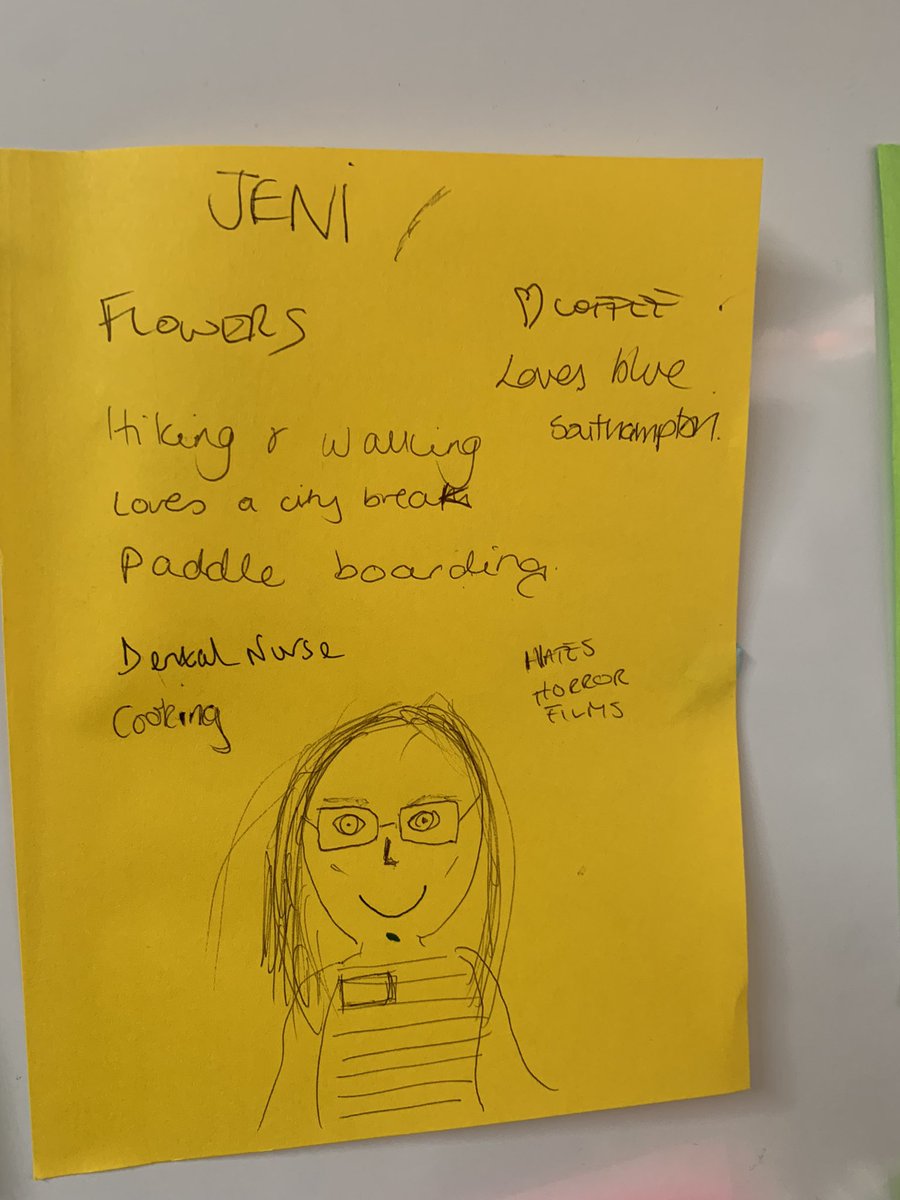 JENI
FLOWERS
♡ COFFEE
Loves blue
Southampton.
Hiking & walking
Loves a city break
Paddle boarding.
Dental Nurse
Cooking
HATES
HORROR
FILMS